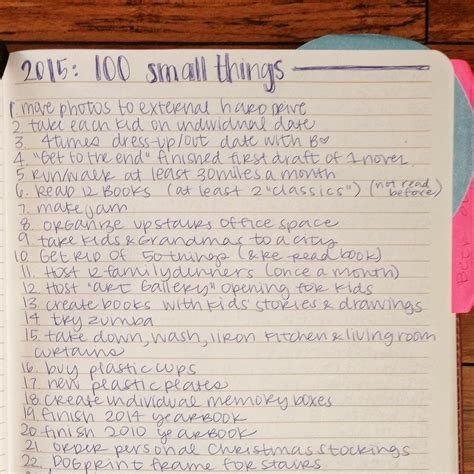 2015: 100 small things
1. move photos to external hard drive
2. take each kid on individual date
3. 4 times dress-up/out date with B♡
4. "Get to the end" finished first draft of 1 novel
5. run/walk at least 30 miles a month
6. Read 12 Books (at least 2 "classics") (not read before)
7. make jam
8. organize upstairs office space
9. take kids & Grandmas to a city
10. Get rid of 50 things (& re read book)
11. Host 12 family dinners (once a month)
12. Host "Art Gallery" opening for kids
13. create books with kids' stories & drawings
14. try zumba
15. take down, wash, iron kitchen & living room
curtains
16. buy plastic cups
17. new plastic plates
18. create individual memory boxes
19. finish 2014 yearbook
20. finish 2010 yearbook
21. order personal Christmas stockings
22. Dogprint frame for stairs